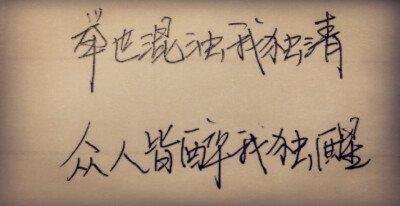 举世混浊我独清
众人皆醉我独醒